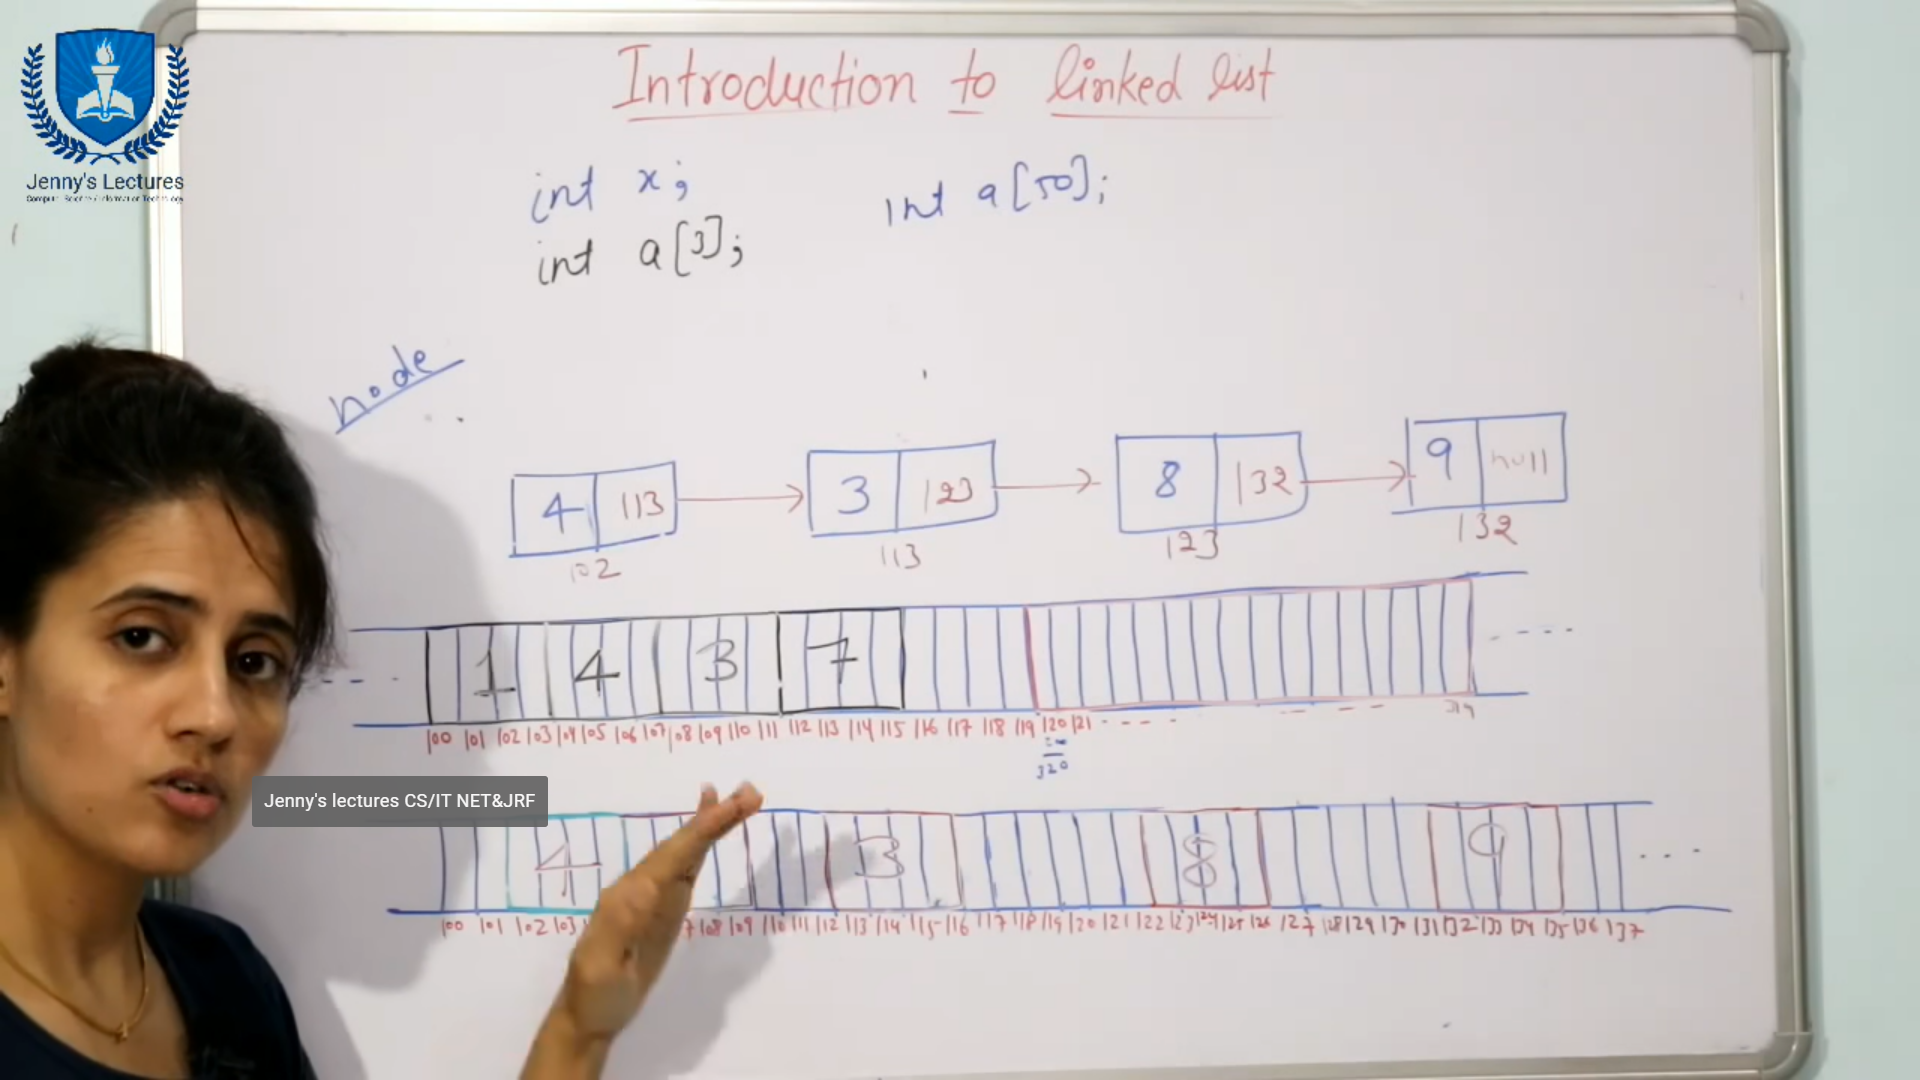 Jenny's Lectures
Computer Science / Information Technology
Introduction to linked list
int x;
int a[50];
int a[3];
node
4 113
3 123
8 132
9 null
102
113
123
132
1 4 3 7
100 101 102 103 104 105 106 107 108 109 110 111 112 113 114 115 116 117 118 119 120 121
320
Jenny's lectures CS/IT NET&JRF
4 3 8 9
100 101 102 103 108 109 110 111 112 113 114 115 116 117 118 119 120 121 122 123 124 125 126 127 128 129 130 131 132 133 134 135 136 137